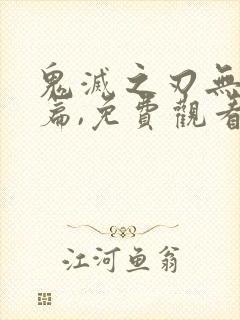 鬼滅之刃無
篇,免費觀看
江河鱼翁